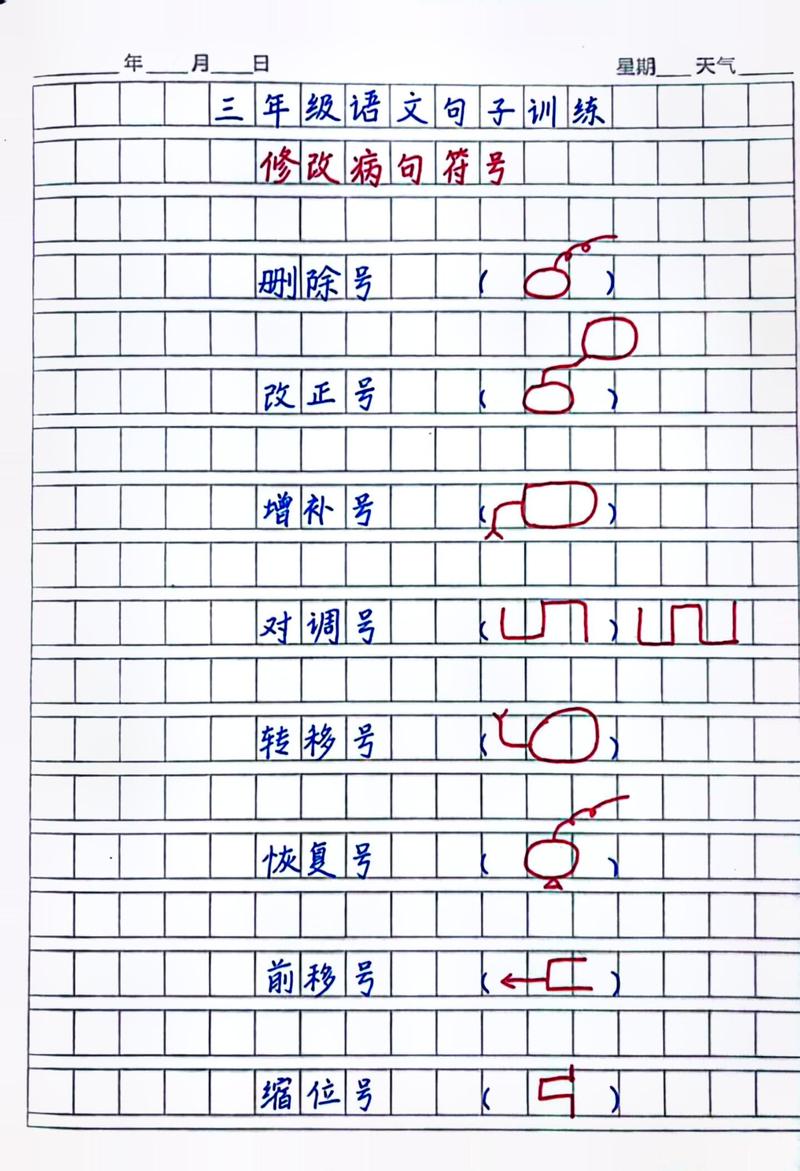 年 月 日 星期 天气
三年级语文句子训练
修改病句符号
删除号 ( )
改正号 ( )
增补号 ( )
对调号 ( )
转移号 ( )
恢复号 ( )
前移号 ( )
缩位号 ( )